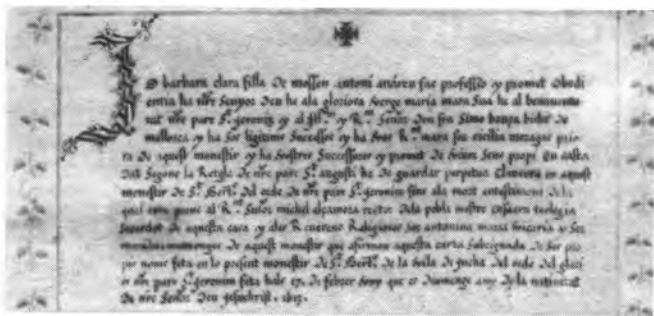 Jo barbara clara filla de mossen antoni andreu fac professio y promet obedi
entia ha nre senyor Deu he ala gloriosa verge maria mara sua he al benaventu
rat nre pare St. geronim y al Rm. Señor Don fra Simo bauça bisbe de
mallorca y ha sos legitims successors y ha Rnt. mara sor cicilia prio
ra de aquest monestir y ha vostres successores y promet de viurer sens propi En casta
dat segons la Regla de nre pare St. agusti he de guardar perpetua Clausura en aquest
monestir de St. del orde de nre pare St. geronim fins ala mort entestimoni dela
qual al Rnt. Señor michel rector dela pobla mestre ensacra teologia
de aquesta casa y dos Religioses sor antonina maria y sor
monge de aquest monestir que afirmen aquesta carta subsignada de son pro
pi nom feta en lo present monestir de St. de la vila de Incha del orde del glori
os nre pare St. geronim feta huis 17. de febrer que es diumenge any dela nativitat
de nre Señor Deu Jesuchrist.